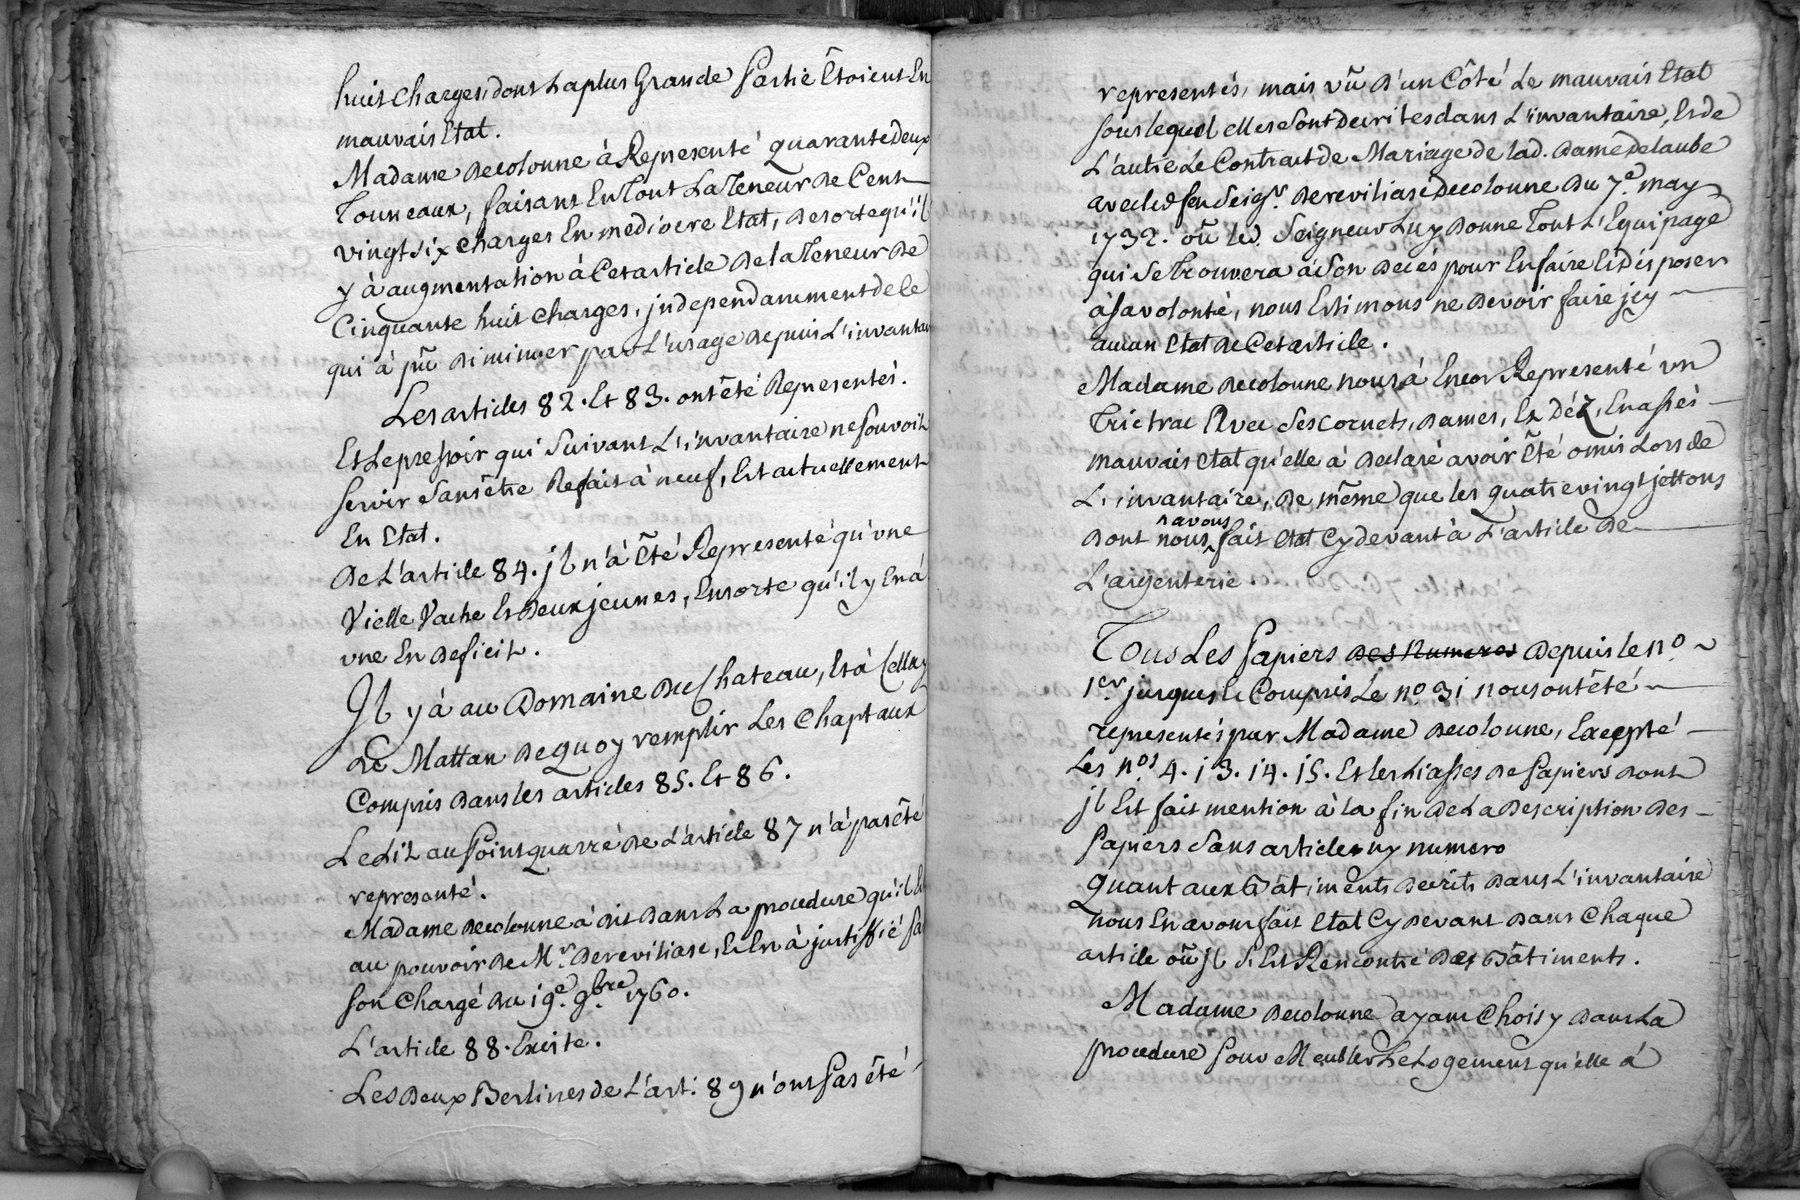 huit Charges, dont La plus Grande Partie Etoient En
mauvais Etat.
Madame Decolonne à Representé quarante Deux
Tonneaux, faisant En Tout La Teneur De Cent
vingt six charges En mediocre Etat, De sorte qu'il
y à augmentation à Cet article De la Teneur De
Cinquante huit charges, independamment de Ce
qui à pû Diminuer par L'usage Depuis L'invantai
Les articles 82. Et 83. ont été Representés.
Et Le pressoir qui suivant L'invantaire ne Pouvoit
servir sans être Refait à neuf, Est actuellement
En Etat.
De L'article 84. jl n'à Eté Representé qu'une
Vielle Vache Et Deux jeunes, Ensorte qu'il y En à
une En Deficit.
Jl y à au Domaine Du Chateau, Et à Cellay
Le Mattan De quoy remplir Les Chaptaux
Compris Dans les articles 85. Et 86.
Le Lit au Point quarré De L'article 87 n'à pas été
representé.
Madame Decolonne à dit Dans La procedure qu'il E
au pouvoir De Mr. Dereviliasc, Et En à justiffié Pa
son Chargé Du 19e. 9bre 1760.
L'article 88. Existe.
Les Deux Berlines de L'art: 89 n'ont Pas été
representés, mais vû D'un Côté Le mauvais Etat
sous lequel elles sont decrites dans L'invantaire, Et de
L'autre Le Contract de Mariage de lad. Dame Delaube
avec led feu Seigr. Dereviliasc Decolonne Du 7e. may
1732. où led. Seigneur Luy Donne Tout L'Equipage
qui se Trouvera à Son Decés pour En faire Et disposer
à sa volonté, nous Estimons ne Devoir faire jcy
aucun Etat De Cet article.
Madame Decolonne nous à Encor Representé un
Trictrac Avec ses Cornets, Dames, Et Déz, En assés
mauvais Etat qu'elle à Declaré avoir Eté omis Lors de
L'invantaire, De même que les quatrevingt jettons
Dont nous
n avons
fait Etat Cy devant à L'article De
L'argenterie.
Tous Les Papiers Des Numeros Depuis le no.
1er. jusques le Compris Le no. 31 nous ont été
representés par Madame Decolonne, Excepté
Les nos 4. 13. 14. 15. Et les Liasses De Papiers Dont
jl Est fait mention à la fin De La Description Des
Papiers Sans article ny numero
Quant aux Bâtiments Decrits Dans L'invantaire
nous En avons fait Etat Cy Devant Dans Chaque
article où jl s'Est Rencontré Des Bâtiments.
Madame Decolonne ayant Choisy Dans La
procedure Pour Meubler Le Logement qu'elle à